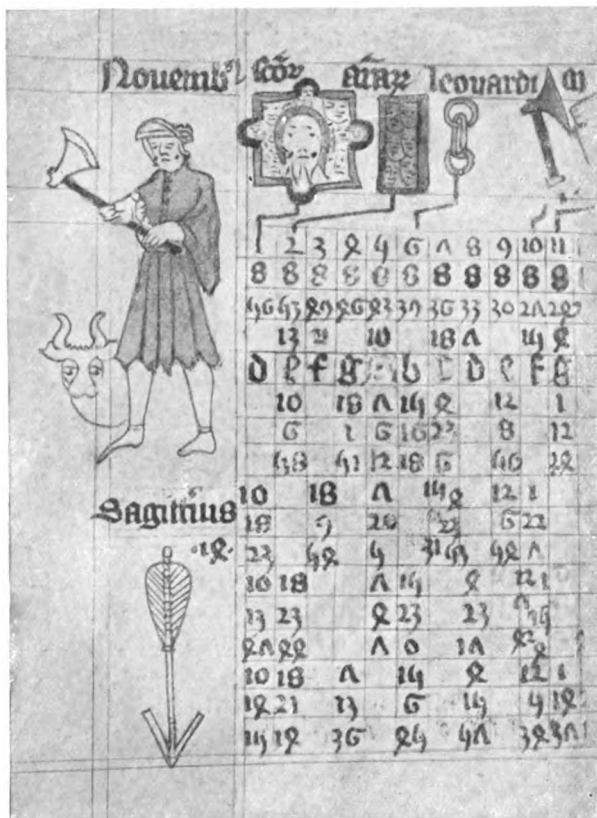 Nouemb scõr leouardi
2 3 4 5 6 7 8 9 10 11
8 8 8 8 8 8 8 8 8 8 8
56 53 49 46 43 39 36 33 30 27
13 10 18 7 15 4
d e f g b c d e f g
10 18 7 15 4 12 1
6 1 6 16 8 12
58 51 12 18 6 24
10 18 7 15 4 12 1
Sagittius
18 9 20 22 6 22
14
23 54 5 31 53 54 7
10 18 7 15 4 12 1
13 23 4 23 23
47 44 7 0 17
10 18 7 15 4 12 1
14 21 13 6 15 5 14
15 14 36 45 57 34 37